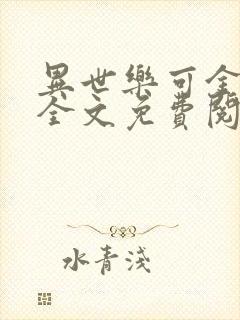 異世樂可全
全文免費閱
水青淺